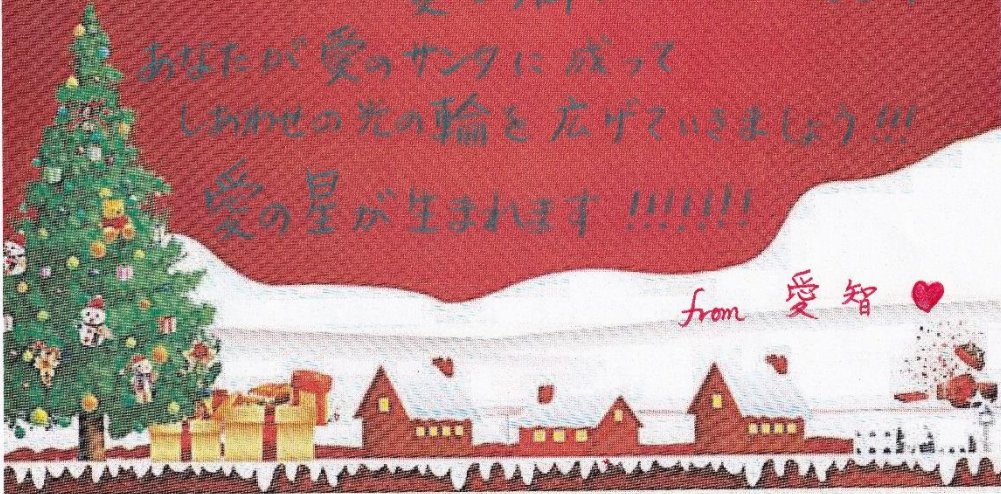 あなたが愛のサンタに成って
しあわせの光の輪を広げていきましょう!!!
愛の星が生まれます!!!!!!!
from 愛智♥